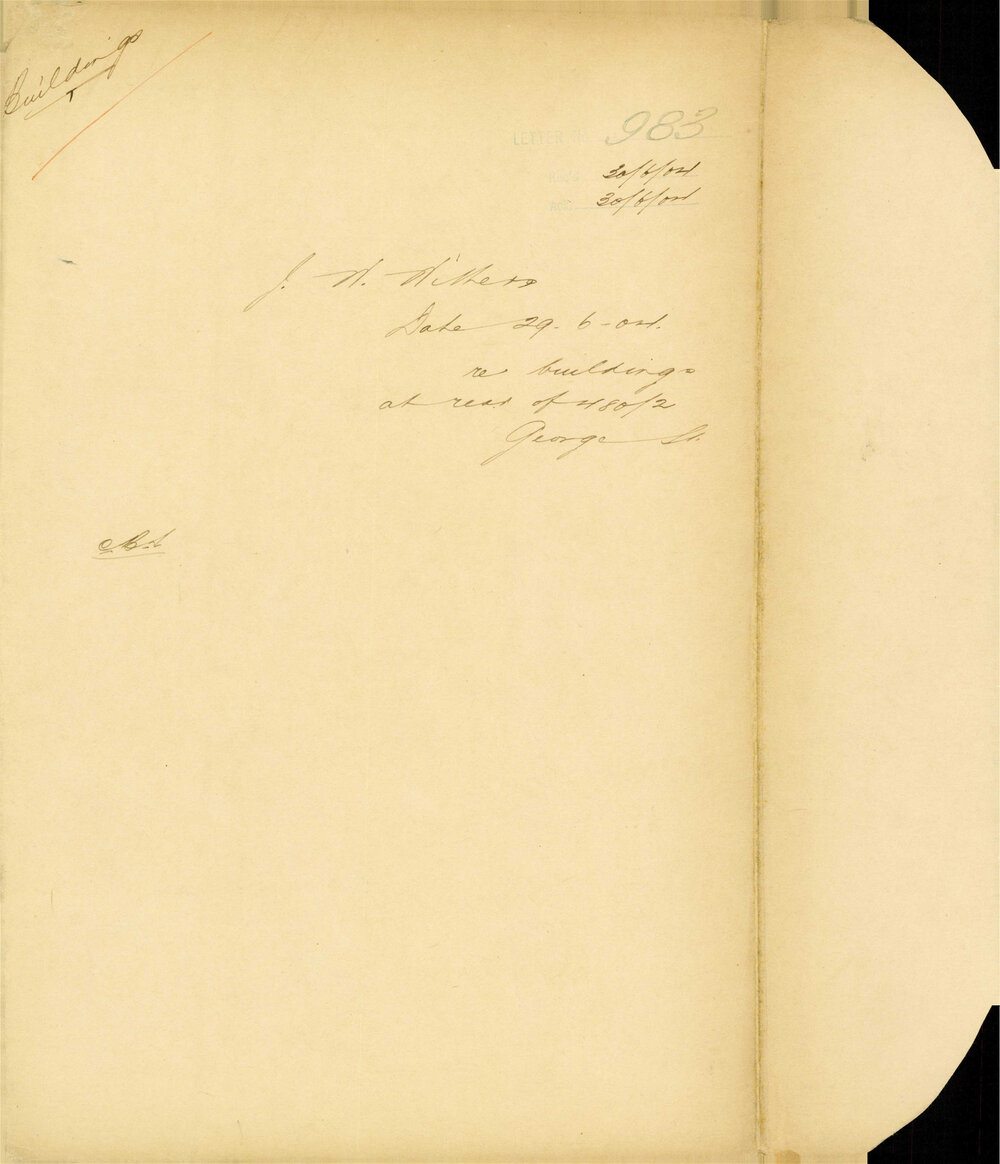 Buildings
LETTER No. 983
Rec'd 30/6/04
Ack. 30/6/04
J. W. Withers
Date 29-6-04.
re buildings
at rear of 480/2
George St.